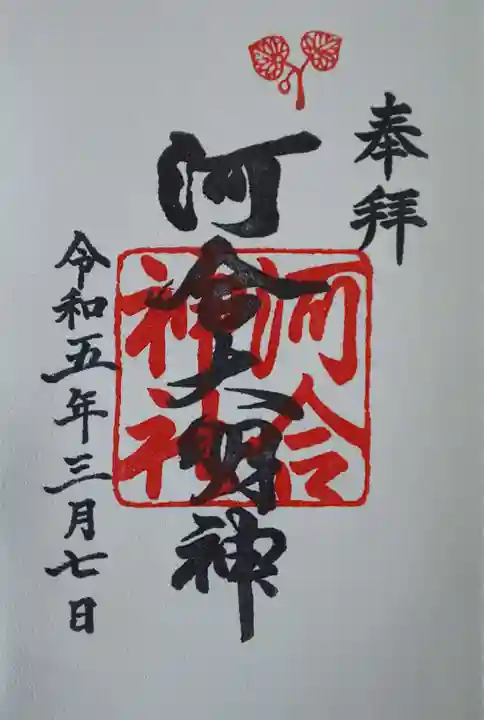 奉拝
河合大明神
河合
神社
令和五年三月七日